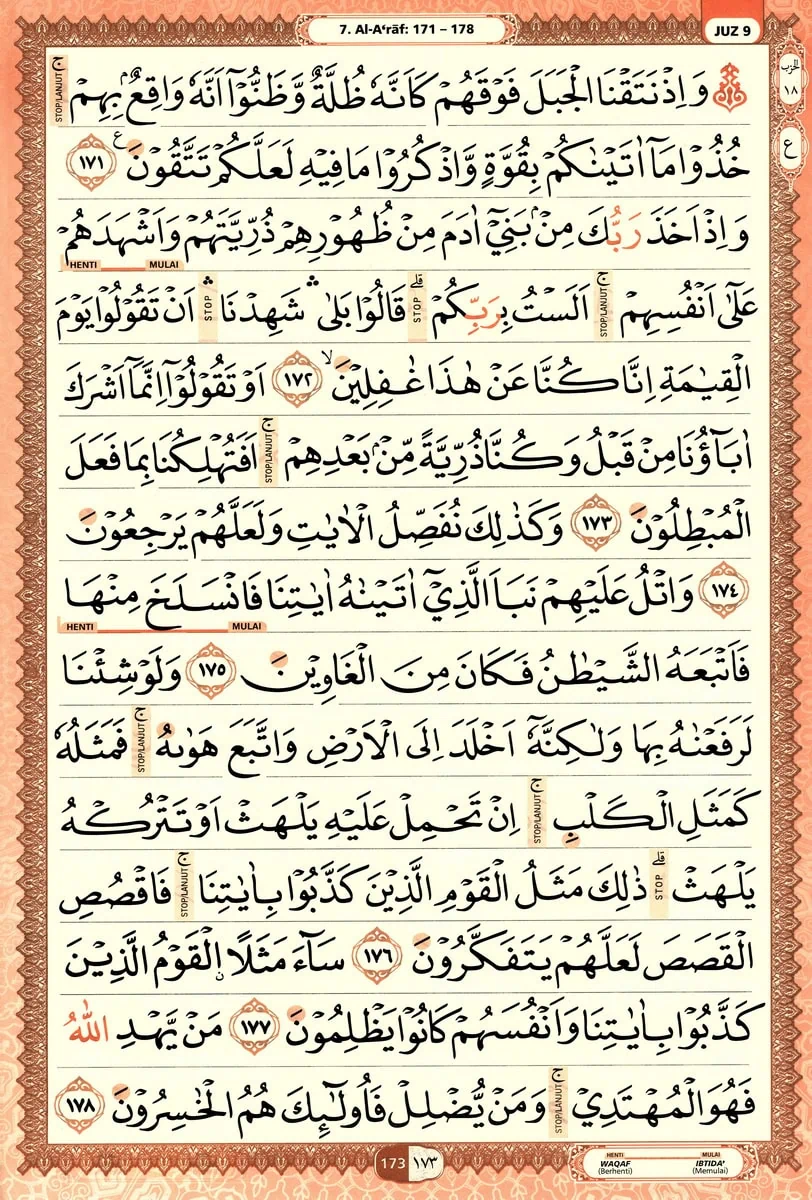 7. Al-A‘rāf: 171 – 178
JUZ 9
الحزب
١٨
ع
۞ وَاِذْ نَتَقْنَا الْجَبَلَ فَوْقَهُمْ كَاَنَّهٗ ظُلَّةٌ وَّظَنُّوْٓا اَنَّهٗ وَاقِعٌۢ بِهِمْۚ STOP/LANJUT
خُذُوْا مَآ اٰتَيْنٰكُمْ بِقُوَّةٍ وَّاذْكُرُوْا مَا فِيْهِ لَعَلَّكُمْ تَتَّقُوْنَ ࣖ ١٧١
وَاِذْ اَخَذَ رَبُّكَ مِنْۢ بَنِيْٓ اٰدَمَ مِنْ ظُهُوْرِهِمْ ذُرِّيَّتَهُمْ وَاَشْهَدَهُمْ
MULAI HENTI
عَلٰٓى اَنْفُسِهِمْۚ STOP/LANJUT اَلَسْتُ بِرَبِّكُمْۗ STOP قَالُوْا بَلٰىۛ شَهِدْنَاۛ STOP اَنْ تَقُوْلُوْا يَوْمَ
الْقِيٰمَةِ اِنَّا كُنَّا عَنْ هٰذَا غٰفِلِيْنَۙ ١٧٢ اَوْ تَقُوْلُوْٓا اِنَّمَآ اَشْرَكَ
اٰبَاۤؤُنَا مِنْ قَبْلُ وَكُنَّا ذُرِّيَّةً مِّنْۢ بَعْدِهِمْۚ STOP/LANJUT اَفَتُهْلِكُنَا بِمَا فَعَلَ
الْمُبْطِلُوْنَ ١٧٣ وَكَذٰلِكَ نُفَصِّلُ الْاٰيٰتِ وَلَعَلَّهُمْ يَرْجِعُوْنَ
١٧٤ وَاتْلُ عَلَيْهِمْ نَبَاَ الَّذِيْٓ اٰتَيْنٰهُ اٰيٰتِنَا فَانْسَلَخَ مِنْهَا
MULAI HENTI
فَاَتْبَعَهُ الشَّيْطٰنُ فَكَانَ مِنَ الْغَاوِيْنَ ١٧٥ وَلَوْ شِئْنَا
لَرَفَعْنٰهُ بِهَا وَلٰكِنَّهٗٓ اَخْلَدَ اِلَى الْاَرْضِ وَاتَّبَعَ هَوٰىهُۚ STOP/LANJUT فَمَثَلُهٗ
كَمَثَلِ الْكَلْبِۚ STOP/LANJUT اِنْ تَحْمِلْ عَلَيْهِ يَلْهَثْ اَوْ تَتْرُكْهُ
يَلْهَثْۗ STOP ذٰلِكَ مَثَلُ الْقَوْمِ الَّذِيْنَ كَذَّبُوْا بِاٰيٰتِنَاۚ STOP/LANJUT فَاقْصُصِ
الْقَصَصَ لَعَلَّهُمْ يَتَفَكَّرُوْنَ ١٧٦ سَاۤءَ مَثَلًا ۨالْقَوْمُ الَّذِيْنَ
كَذَّبُوْا بِاٰيٰتِنَا وَاَنْفُسَهُمْ كَانُوْا يَظْلِمُوْنَ ١٧٧ مَنْ يَّهْدِ اللّٰهُ
فَهُوَ الْمُهْتَدِيْۚ STOP/LANJUT وَمَنْ يُّضْلِلْ فَاُولٰۤىِٕكَ هُمُ الْخٰسِرُوْنَ ١٧٨
173 ١٧٣
HENTI MULAI
WAQAF IBTIDA'
(Berhenti) (Memulai)